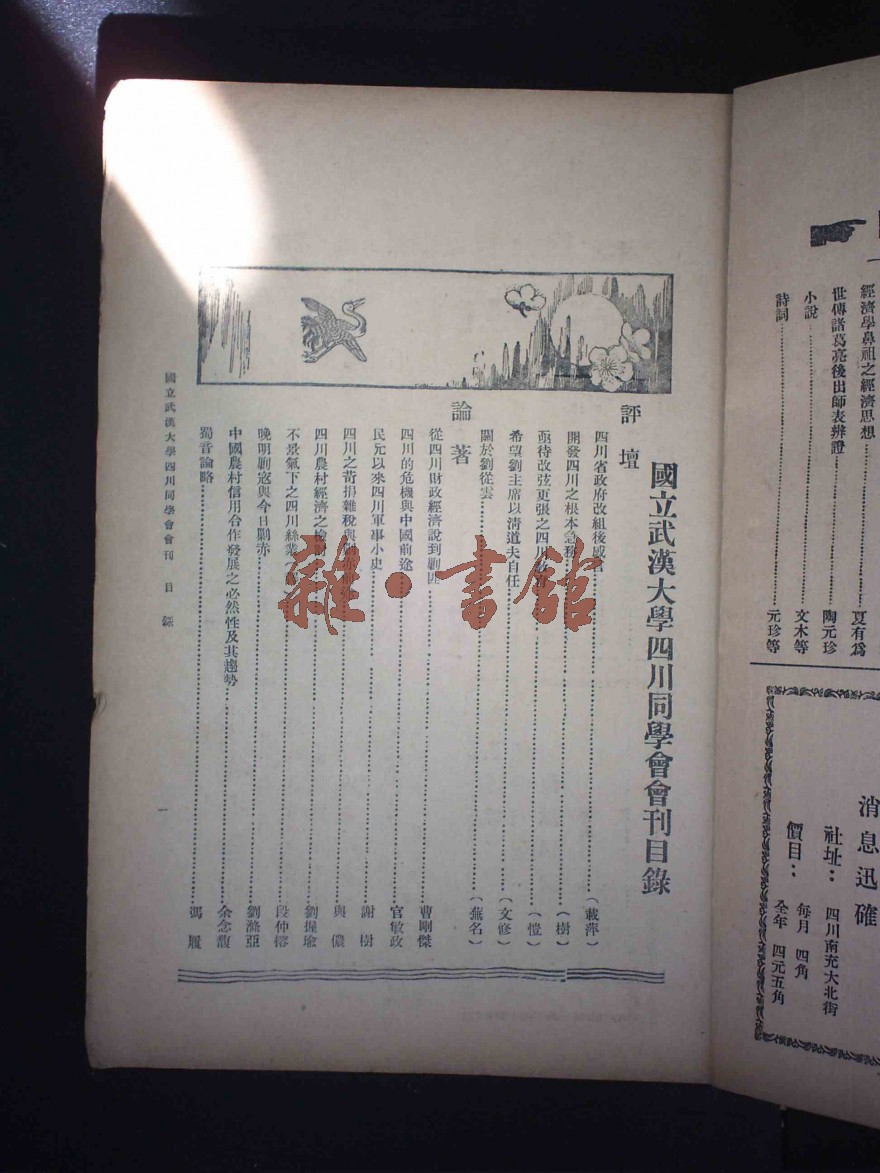 經濟學鼻祖之經濟思想……夏有爲
世傳諸葛亮後出師表辨證……陶元珍
小說……文木等
詩詞……元珍等
消息迅確
社址：四川南充大北街
價目：每月 四角
全年 四元五角
國立武漢大學四川同學會會刊目錄
評壇
四川省政府改組後感……(載萍)
開發四川之根本急務……(樹)
亟待改弦更張之四川……(愷)
希望劉主席以清道夫自任……(文修)
關於劉從雲……(無名)
論著
從四川財政經濟說到剿匪……曹剛傑
四川的危機與中國前途……官敏政
民元以來四川軍事小史……謝樹
四川之苛捐雜稅與……與儂
四川農村經濟之……劉握瑜
不景氣下之四川絲業……段仲榕
晚明剿寇與今日剿赤……劉滌亞
中國農村信用合作發展之必然性及其趨勢……余念馥
蜀音論略……馮履
國立武漢大學四川同學會會刊 目錄
一
雜·書館